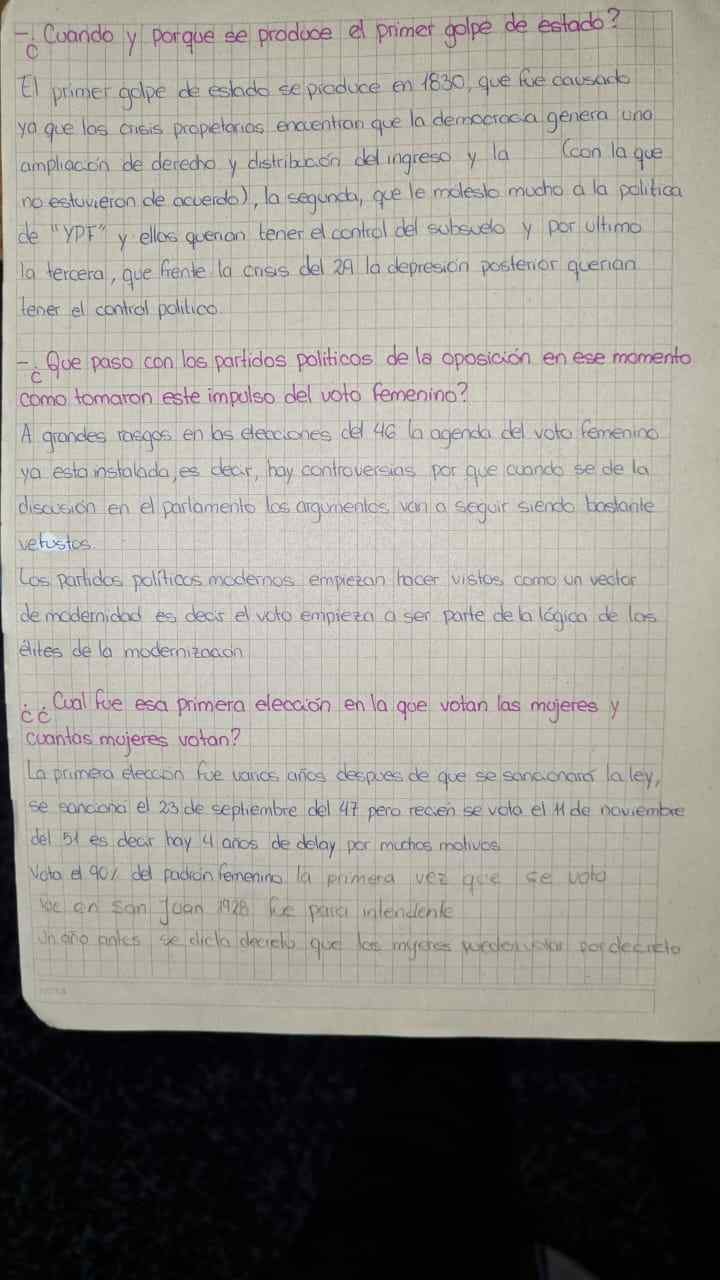 -¿Cuando y porque se produce el primer golpe de estado?
El primer golpe de estado se produce en 1830, que fue causado
ya que las crisis propietarias encuentran que la democracia genera una
ampliación de derecho y distribución del ingreso y la (con la que
no estuvieron de acuerdo), la segunda, que le molesto mucho a la politica
de "YPF" y ellos querian tener el control del subsuelo y por ultimo
la tercera, que frente la crisis del 29 la depresión posterior querian
tener el control politico.
-¿Que paso con los partidos politicos de la oposición en ese momento
como tomaron este impulso del voto femenino?
A grandes rasgos en las elecciones del 46 la agenda del voto femenino
ya esta instalada, es decir, hay controversias por que cuando se de la
discusión en el parlamento los argumentos van a seguir siendo bastante
vetustos.
Los partidos políticos modernos empiezan hacer vistos como un vector
de modernidad es decir el voto empieza a ser parte de la lógica de las
élites de la modernización
¿¿Cual fue esa primera elección en la que votan las mujeres y
cuantas mujeres votan?
La primera elección fue varios años despues de que se sancionara la ley,
se sanciona el 23 de septiembre del 47 pero recien se vota el 11 de noviembre
del 51 es decir hay 4 años de delay por muchos motivos
Vota el 90% del padrón femenino la primera vez que se voto
fue en San Juan 1928 fue para intendente
Un año antes se dicta decreto que las mujeres pueden votar por decreto